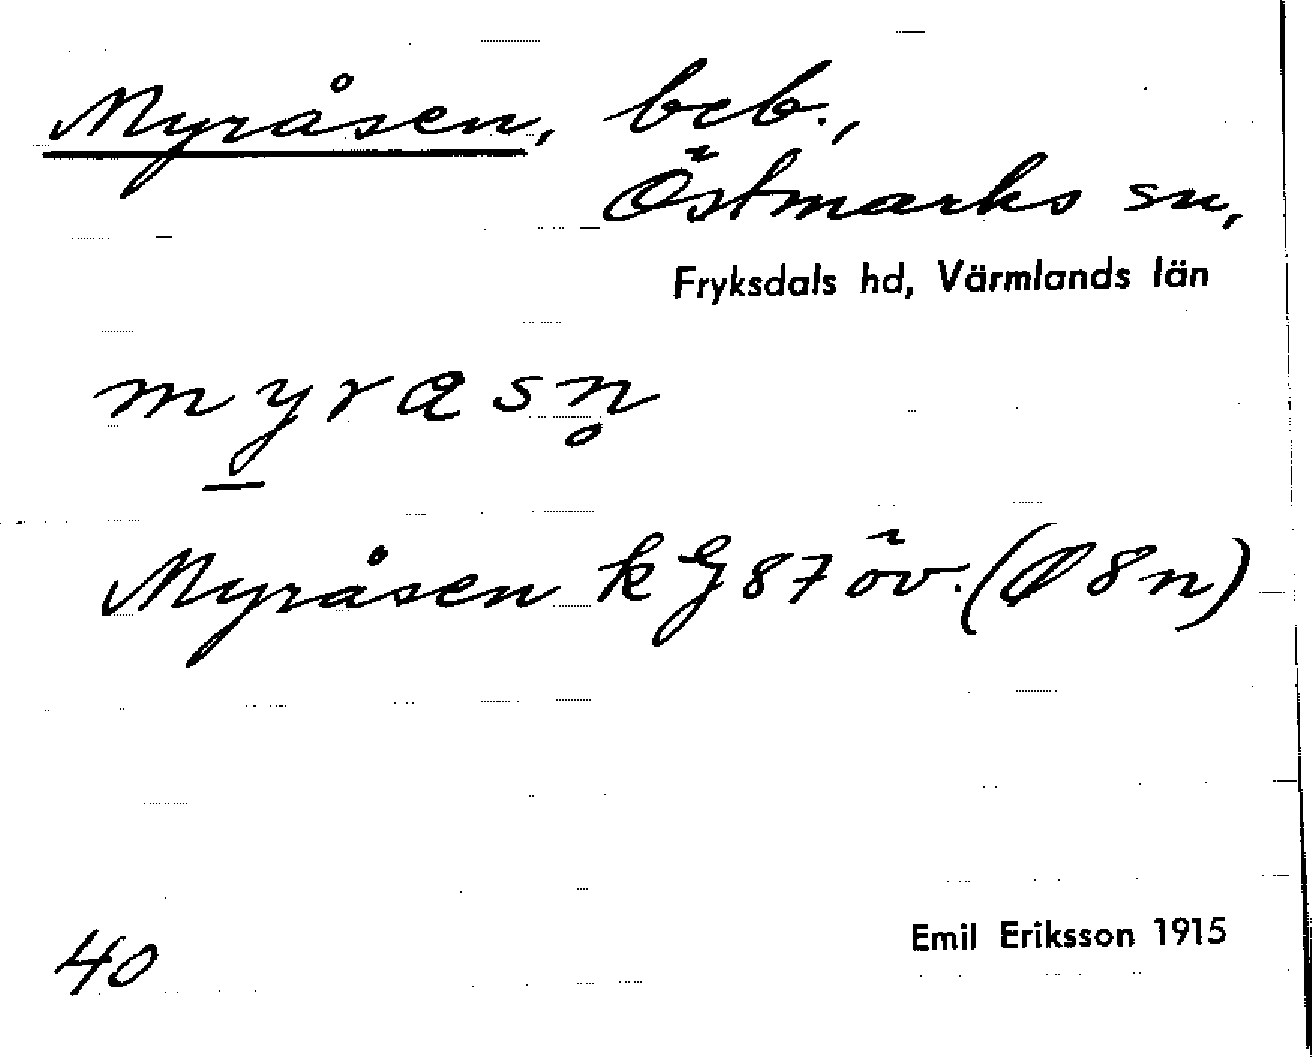 Myråsen, beb.,
Östmarks sn,
Fryksdals hd, Värmlands län
myrasn̥
Myråsen k G 87 öv. (Ø 8 n)
40
Emil Eriksson 1915